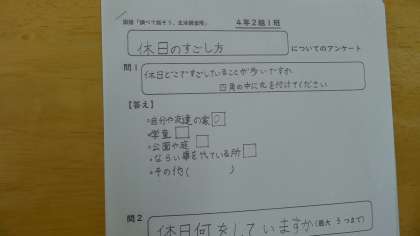 国語「調べて話そう、生活調査隊」 4年2組1班
休日のすごし方 についてのアンケート
問1 休日どこですごしていることが多いですか
四角の中に丸を付けてください
【答え】
・自分や友達の家 ○
・学童
・公園や庭
・ならい事をやっている所
・その他( )
問2 休日何をしていますか(最大 うつまで)